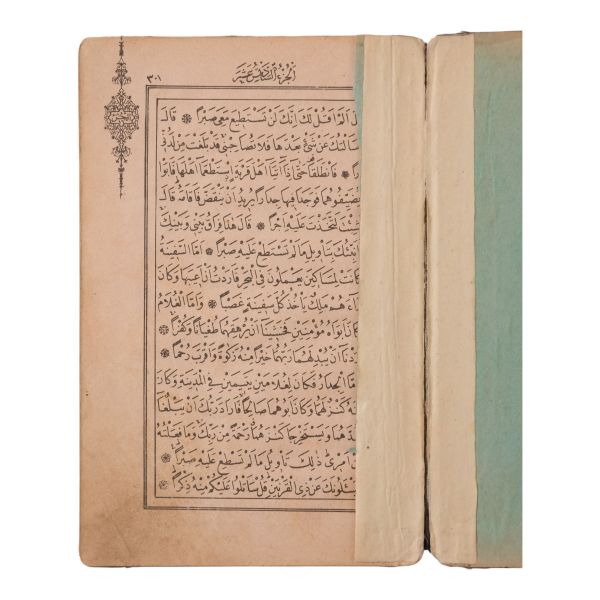 الْجُزْءُ السَّادِسُ عَشَرَ
٣٠١
اَلَمْ اَقُلْ لَكَ اِنَّكَ لَنْ تَسْتَطِيعَ مَعِىَ صَبْرًا ۞ قَالَ
سَاَلْتُكَ عَنْ شَىْءٍ بَعْدَهَا فَلَا تُصَاحِبْنٖى قَدْ بَلَغْتَ مِنْ لَدُنّٖى
رًا ۞ فَانْطَلَقَا حَتّٰى اِذَا اَتَيَا اَهْلَ قَرْيَةٍ اِسْتَطْعَمَا اَهْلَهَا فَاَبَوْا
يُضَيِّفُوهُمَا فَوَجَدَا فٖيهَا جِدَارًا يُرٖيدُ اَنْ يَنْقَضَّ فَاَقَامَهُ قَالَ
شِئْتَ لَتَّخَذْتَ عَلَيْهِ اَجْرًا ۞ قَالَ هٰذَا فِرَاقُ بَيْنٖى وَبَيْنِكَ
اُنَبِّئُكَ بِتَاْوٖيلِ مَا لَمْ تَسْتَطِعْ عَلَيْهِ صَبْرًا ۞ اَمَّا السَّفٖينَةُ
كَانَتْ لِمَسَاكٖينَ يَعْمَلُونَ فِى الْبَحْرِ فَاَرَدْتُ اَنْ اَعٖيبَهَا وَكَانَ
اءَهُمْ مَلِكٌ يَاْخُذُ كُلَّ سَفٖينَةٍ غَصْبًا ۞ وَاَمَّا الْغُلَامُ
كَانَ اَبَوَاهُ مُؤْمِنَيْنِ فَخَشٖينَا اَنْ يُرْهِقَهُمَا طُغْيَانًا وَكُفْرًا ۞
رَدْنَا اَنْ يُبْدِلَهُمَا رَبُّهُمَا خَيْرًا مِنْهُ زَكٰوةً وَاَقْرَبَ رُحْمًا ۞
مَّا الْجِدَارُ فَكَانَ لِغُلَامَيْنِ يَتٖيمَيْنِ فِى الْمَدٖينَةِ وَكَانَ
تَهُ كَنْزٌ لَهُمَا وَكَانَ اَبُوهُمَا صَالِحًا فَاَرَادَ رَبُّكَ اَنْ يَبْلُغَا
شُدَّهُمَا وَيَسْتَخْرِجَا كَنْزَهُمَا رَحْمَةً مِنْ رَبِّكَ وَمَا فَعَلْتُهُ
نْ اَمْرٖى ذٰلِكَ تَاْوٖيلُ مَا لَمْ تَسْطِعْ عَلَيْهِ صَبْرًا ۞
يَسْئَلُونَكَ عَنْ ذِى الْقَرْنَيْنِ قُلْ سَاَتْلُوا عَلَيْكُمْ مِنْهُ ذِكْرًا ۞